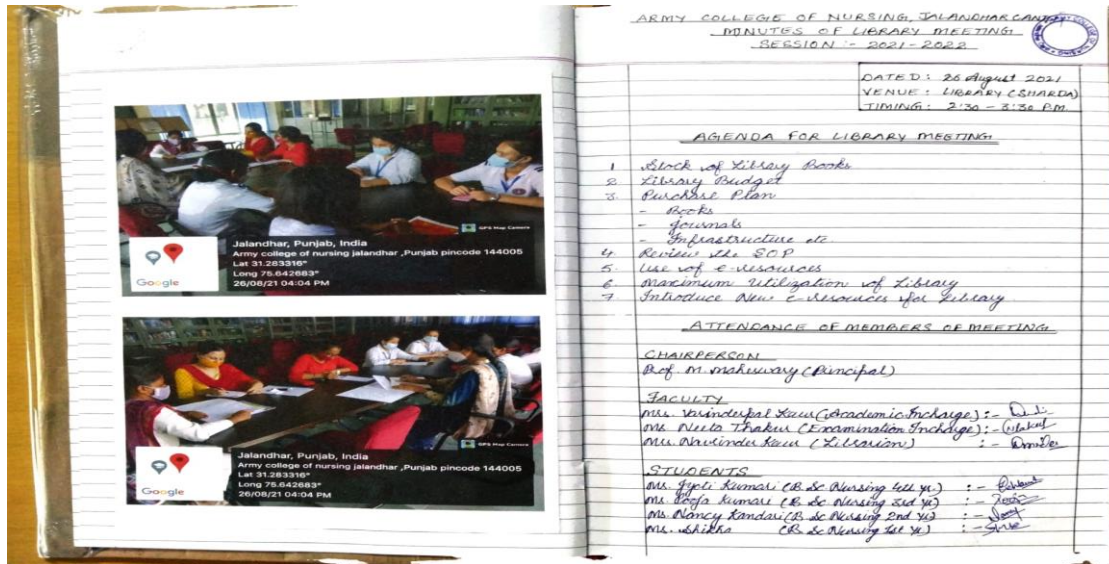 GPS Map Camera
Jalandhar, Punjab, India
Army college of nursing jalandhar ,Punjab pincode 144005
Lat 31.283316°
Long 75.642683°
26/08/21 04:04 PM
Google
GPS Map Camera
Jalandhar, Punjab, India
Army college of nursing jalandhar ,Punjab pincode 144005
Lat 31.283316°
Long 75.642683°
26/08/21 04:04 PM
Google
ARMY COLLEGE OF NURSING, JALANDHAR CANTT
MINUTES OF LIBRARY MEETING
SESSION :- 2021-2022
DATED : 26 August 2021
VENUE : LIBRARY (SHARDA)
TIMING : 2:30 - 3:30 P.M.
AGENDA FOR LIBRARY MEETING
1 Stock of Library Books
2. Library Budget
3. Purchase Plan
- Books
- Journals
- Infrastructure etc.
4. Review the SOP
5. Use of e-resources
6. Maximum Utilization of Library
7. Introduce New e-resources for Library
ATTENDANCE OF MEMBERS OF MEETING
CHAIRPERSON
Prof. M. Maheswary (Principal)
FACULTY
Mrs. Varinderpal Kaur (Academic Incharge) :-
Ms. Neeta Thakur (Examination Incharge) :-
Mrs. Navinder Kaur (Librarian) :-
STUDENTS
Ms. Jyoti Kumari (B.Sc Nursing 4th Yr.) :-
Ms. Pooja Kumari (B.Sc Nursing 3rd Yr) :-
Ms. Nancy Kandari (B.Sc Nursing 2nd Yr) :-
Ms. Shikha (B.Sc Nursing 1st Yr) :-